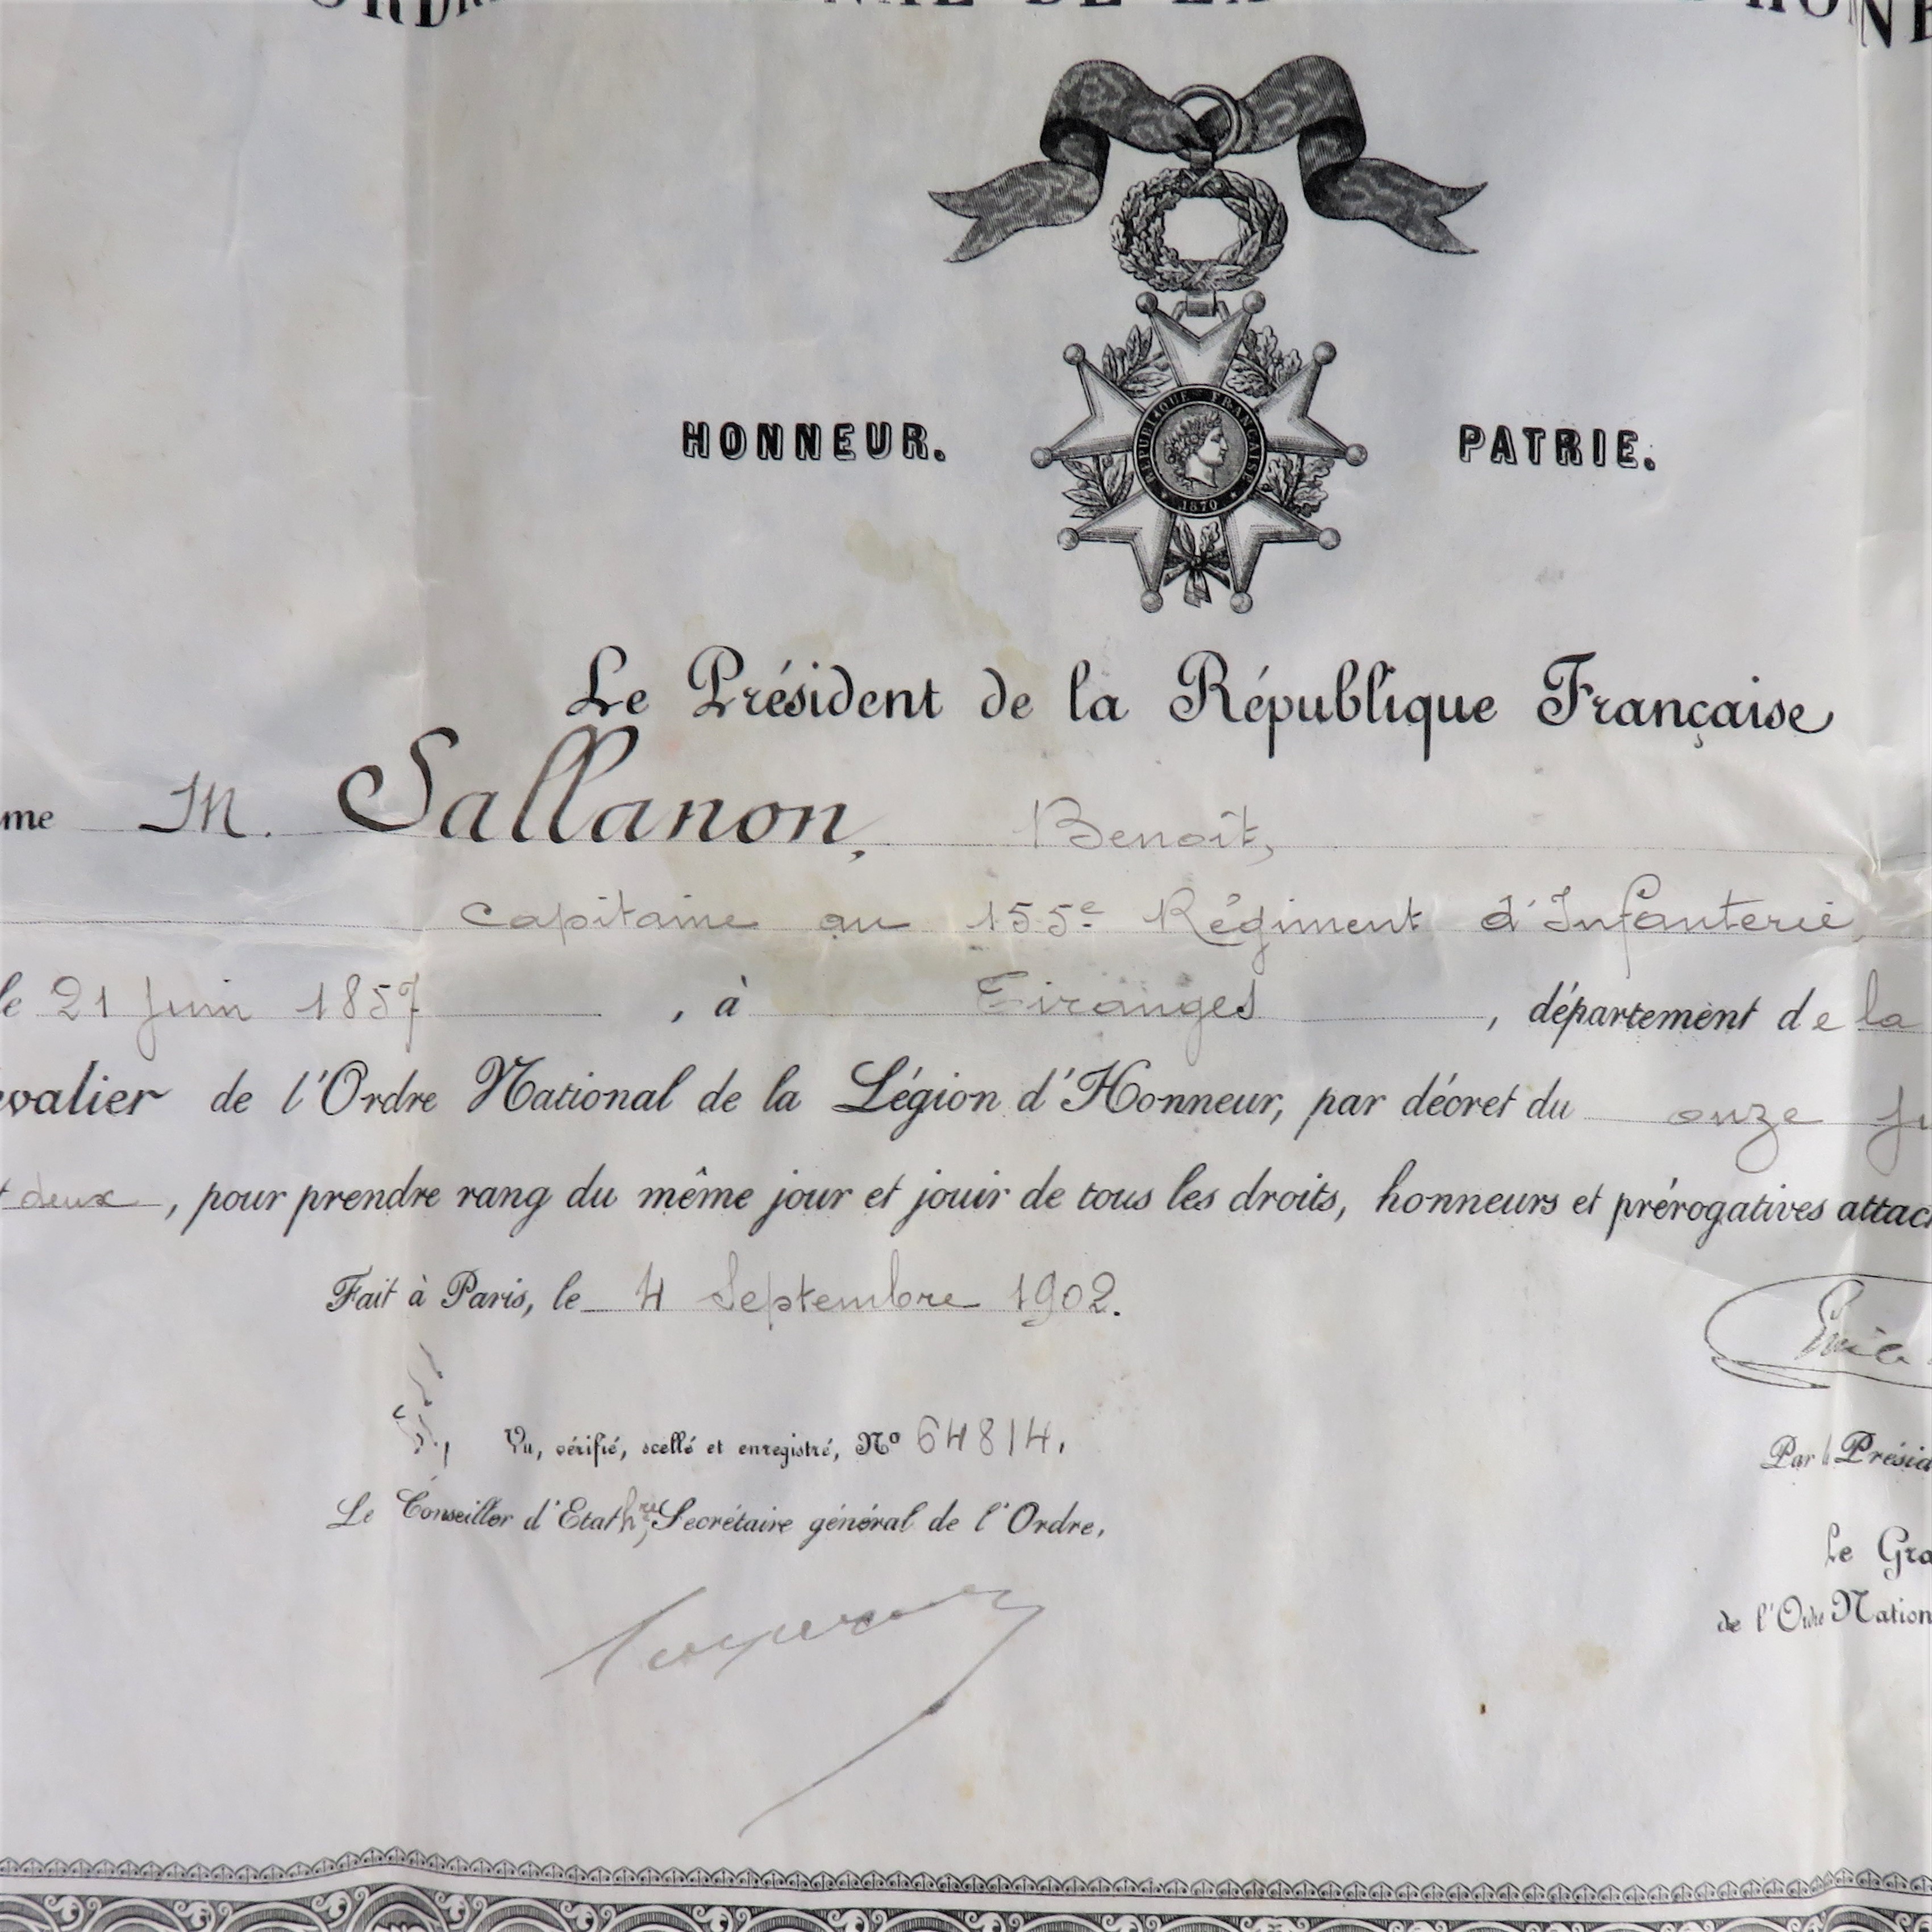 HONNEUR. PATRIE.
RÉPUBLIQUE FRANÇAISE
1870
Le Président de la République Française
me M. Sallanon, Benoît,
Capitaine au 155e Régiment d'Infanterie,
le 21 Juin 1857, à Tiranges, département de la
valier de l'Ordre National de la Légion d'Honneur, par décret du onze Ju
t deux, pour prendre rang du même jour et jouir de tous les droits, honneurs et prérogatives attac
Fait à Paris, le 4 Septembre 1902.
Vu, vérifié, scellé et enregistré, No 64814.
Par le Présid
Le Conseiller d'Etat hre, Secrétaire général de l'Ordre,
Le Gra
de l'Ordre Nation